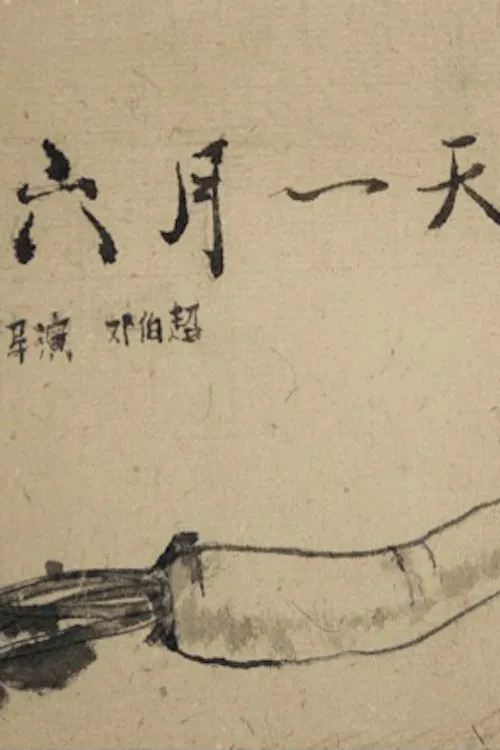 六月一天
导演 邓伯超